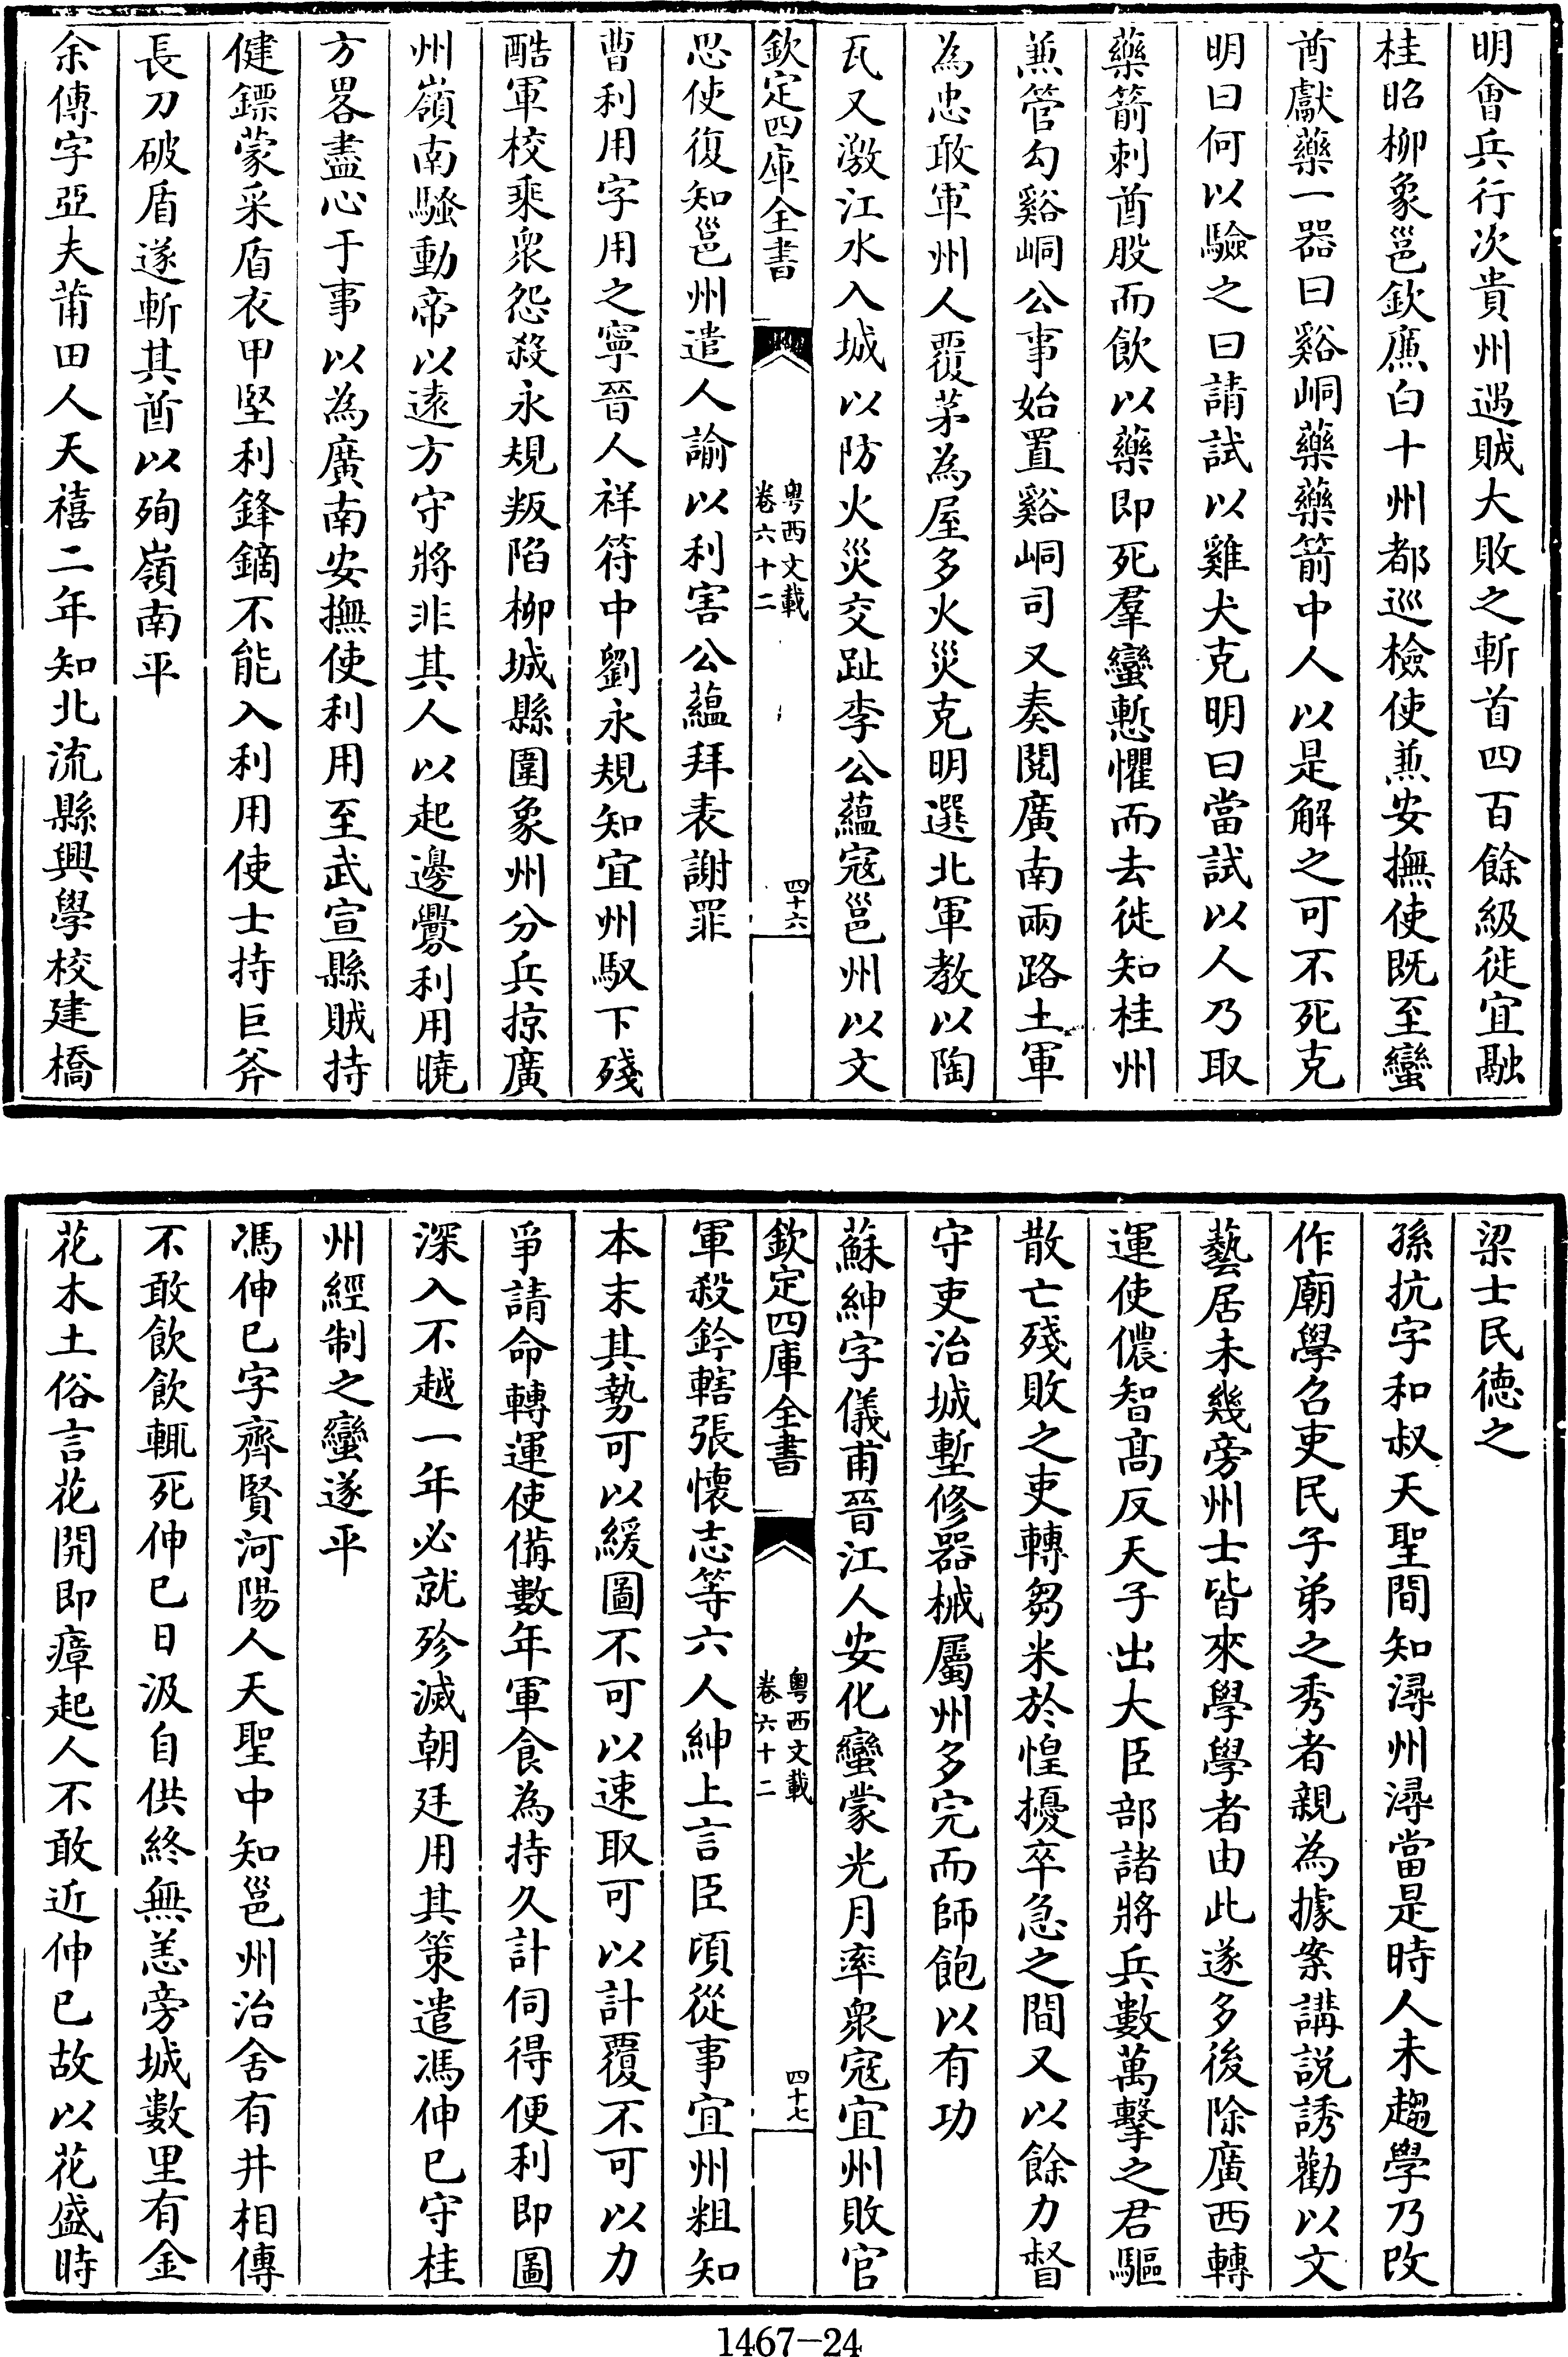 明會兵行次貴州遇賊大敗之斬首四百餘級徙宜融
桂昭柳象邕欽廉白十州都巡檢使兼安撫使既至蠻
酋獻藥一器曰谿峒藥藥箭中人以是解之可不死克
明曰何以驗之曰請試以雞犬克明曰當試以人乃取
藥箭刺酋股而飲以藥即死羣蠻慙懼而去徙知桂州
兼管勾谿峒公事始置谿峒司又奏閱廣南兩路土軍
為忠敢軍州人覆茅為屋多火災克明選北軍教以陶
瓦又激江水入城以防火災交趾李公蘊寇邕州以文
欽定四庫全書
粵西文載
卷六十二
四十六
忍使復知邕州遣人諭以利害公蘊拜表謝罪
曹利用字用之寧晉人祥符中劉永規知宜州馭下殘
酷軍校乘衆怨殺永規叛陷柳城縣圍象州分兵掠廣
州嶺南騷動帝以遠方守將非其人以起邊釁利用曉
方畧盡心于事以為廣南安撫使利用至武宣縣賊持
健鏢蒙采盾衣甲堅利鋒鏑不能入利用使士持巨斧
長刀破盾遂斬其酋以殉嶺南平
余傳字亞夫莆田人天禧二年知北流縣興學校建橋
梁士民德之
孫抗字和叔天聖間知潯州潯當是時人未趨學乃改
作廟學召吏民子弟之秀者親為據案講説誘勸以文
藝居未幾旁州士皆來學學者由此遂多後除廣西轉
運使儂智高反天子出大臣部諸將兵數萬擊之君驅
散亡殘敗之吏轉芻米於惶擾卒急之間又以餘力督
守吏治城塹修器械屬州多完而師飽以有功
蘇紳字儀甫晉江人安化蠻蒙光月率衆寇宜州敗官
欽定四庫全書
粵西文載
卷六十二
四十七
軍殺鈐轄張懷志等六人紳上言臣頃從事宜州粗知
本末其勢可以緩圖不可以速取可以計覆不可以力
爭請命轉運使備數年軍食為持久計伺得便利即圖
深入不越一年必就殄滅朝廷用其策遣馮伸已守桂
州經制之蠻遂平
馮伸已字齊賢河陽人天聖中知邕州治舍有井相傳
不敢飲飲輒死伸已日汲自供終無恙旁城數里有金
花木土俗言花開即瘴起人不敢近伸已故以花盛時
1467-24